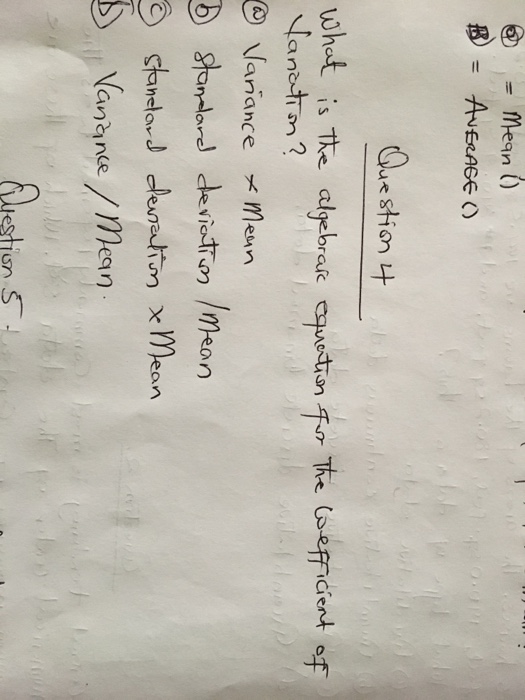 = Mean ()
= AVERAGE ()
Question 4
What is the algebraic equation for the Coefficient of
Variation?
(a) Variance x Mean
(b) Standard deviation / Mean
(c) Standard deviation x Mean
Variance / Mean.
Question 5.